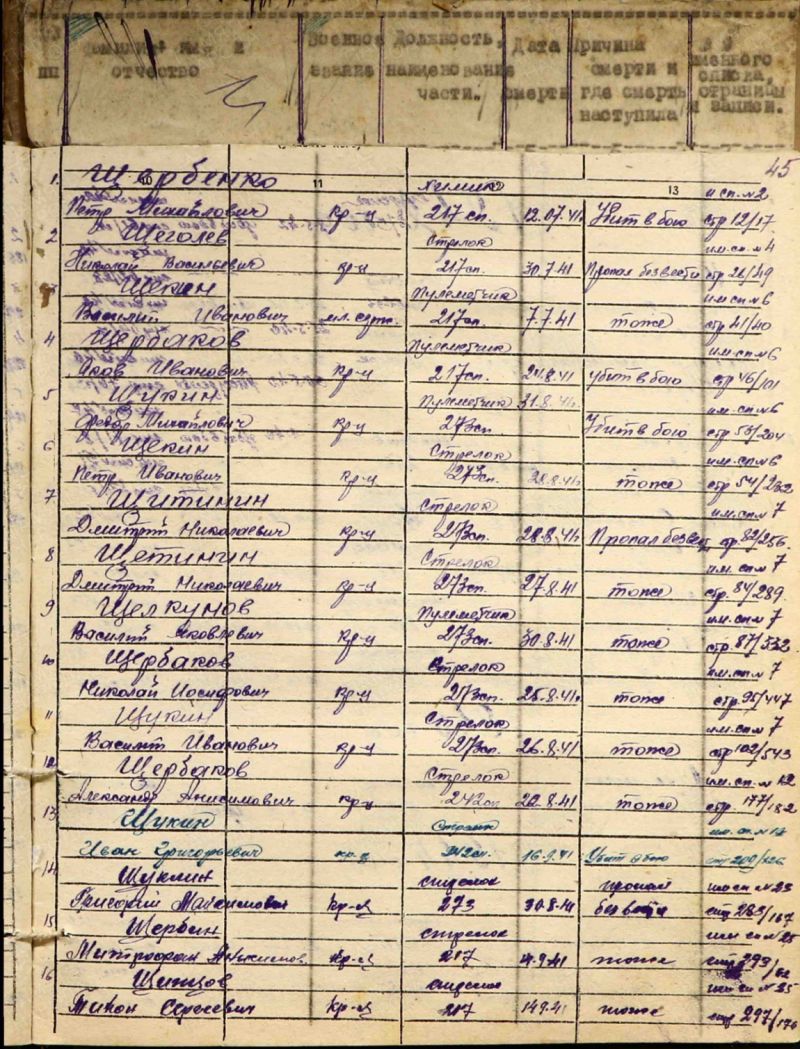 Фамилия имя и Военное Должность, Дата Причина № №
пп отчество звание наименование смерти и именного
части. смерти где смерть списка, страницы
наступила и записи.
45
1. Щербенко химик и сп. №2
10 11 13
Петр Михайлович кр-ц 217 сп. 12.07.41 Убит в бою стр 12/17
2 Щеголев Стрелок им. сп. №4
Николай Васильевич кр-ц 217 сп. 30.7.41 Пропал безвести стр 26/49
3 Щекин Пулеметчик им сп №6
Василий Иванович мл. серж. 217 сп. 7.7.41 тоже стр 41/40
4 Щербаков Пулеметчик им. сп №6
Яков Иванович кр-ц 217 сп. 24.8.41 Убит в бою стр 46/101
5 Щукин Пулеметчик 31.8.41 им. сп №6
Федор Михайлович кр-ц 273 сп Убит в бою стр. 53/204
6 Щекин Стрелок им. сп. №6
Петр Иванович кр-ц 273 сп. 28.8.41 тоже стр 54/232
7 Щитинин Стрелок им. сп № 7
Дмитрий Николаевич кр-ц 273 сп. 28.8.41 Пропал безвест стр. 82/256
8 Щетинин Стрелок им. сп № 7
Дмитрий Николаевич кр-ц 273 сп. 27.8.41 тоже стр. 84/289
9 Щелкунов Пулеметчик им. сп № 7
Василий Яковлевич кр-ц 273 сп. 30.8.41 тоже стр. 87/332
10 Щербаков Стрелок им. сп № 7
Николай Иосифович кр-ц 273 сп. 25.8.41 тоже стр. 95/447
11 Щукин Стрелок им. сп № 7
Василий Иванович кр-ц 273 сп. 26.8.41 тоже стр 102/543
12 Щербаков Стрелок им. сп. № 12
Александр Анисимович кр-ц 242 сп 22.8.41 тоже стр. 177/182
13 Щукин Стрелок им. сп. №
Иван Григорьевич кр-ц 242 сп. 16.9.41 Убит в бою стр 200/126
14 Щуклин стрелок пропал им сп № 23
Григорий Максимович кр-ц 273 30.8.41 без вести стр 283/167
15 Щербин стрелок им сп № 25
Митрофан кр-ц 217 4.9.41 тоже стр 293/
16 стрелок им сп № 25
Тихон Сергеевич кр-ц 217 14.9.41 тоже стр 297/176